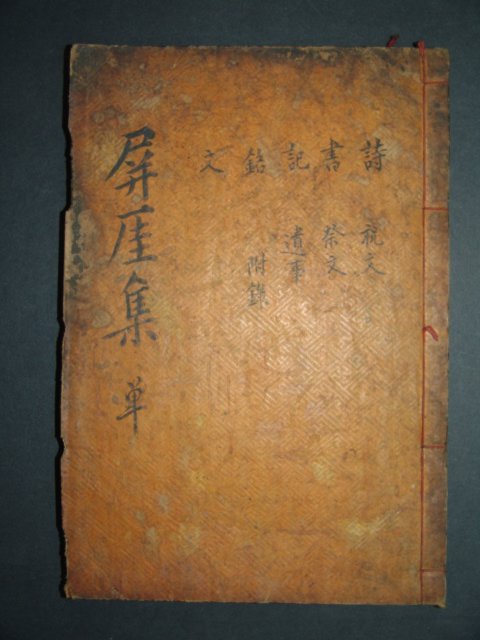 詩 祝文
書 祭文
記 遺事
銘 附錄
文
屏厓集 单